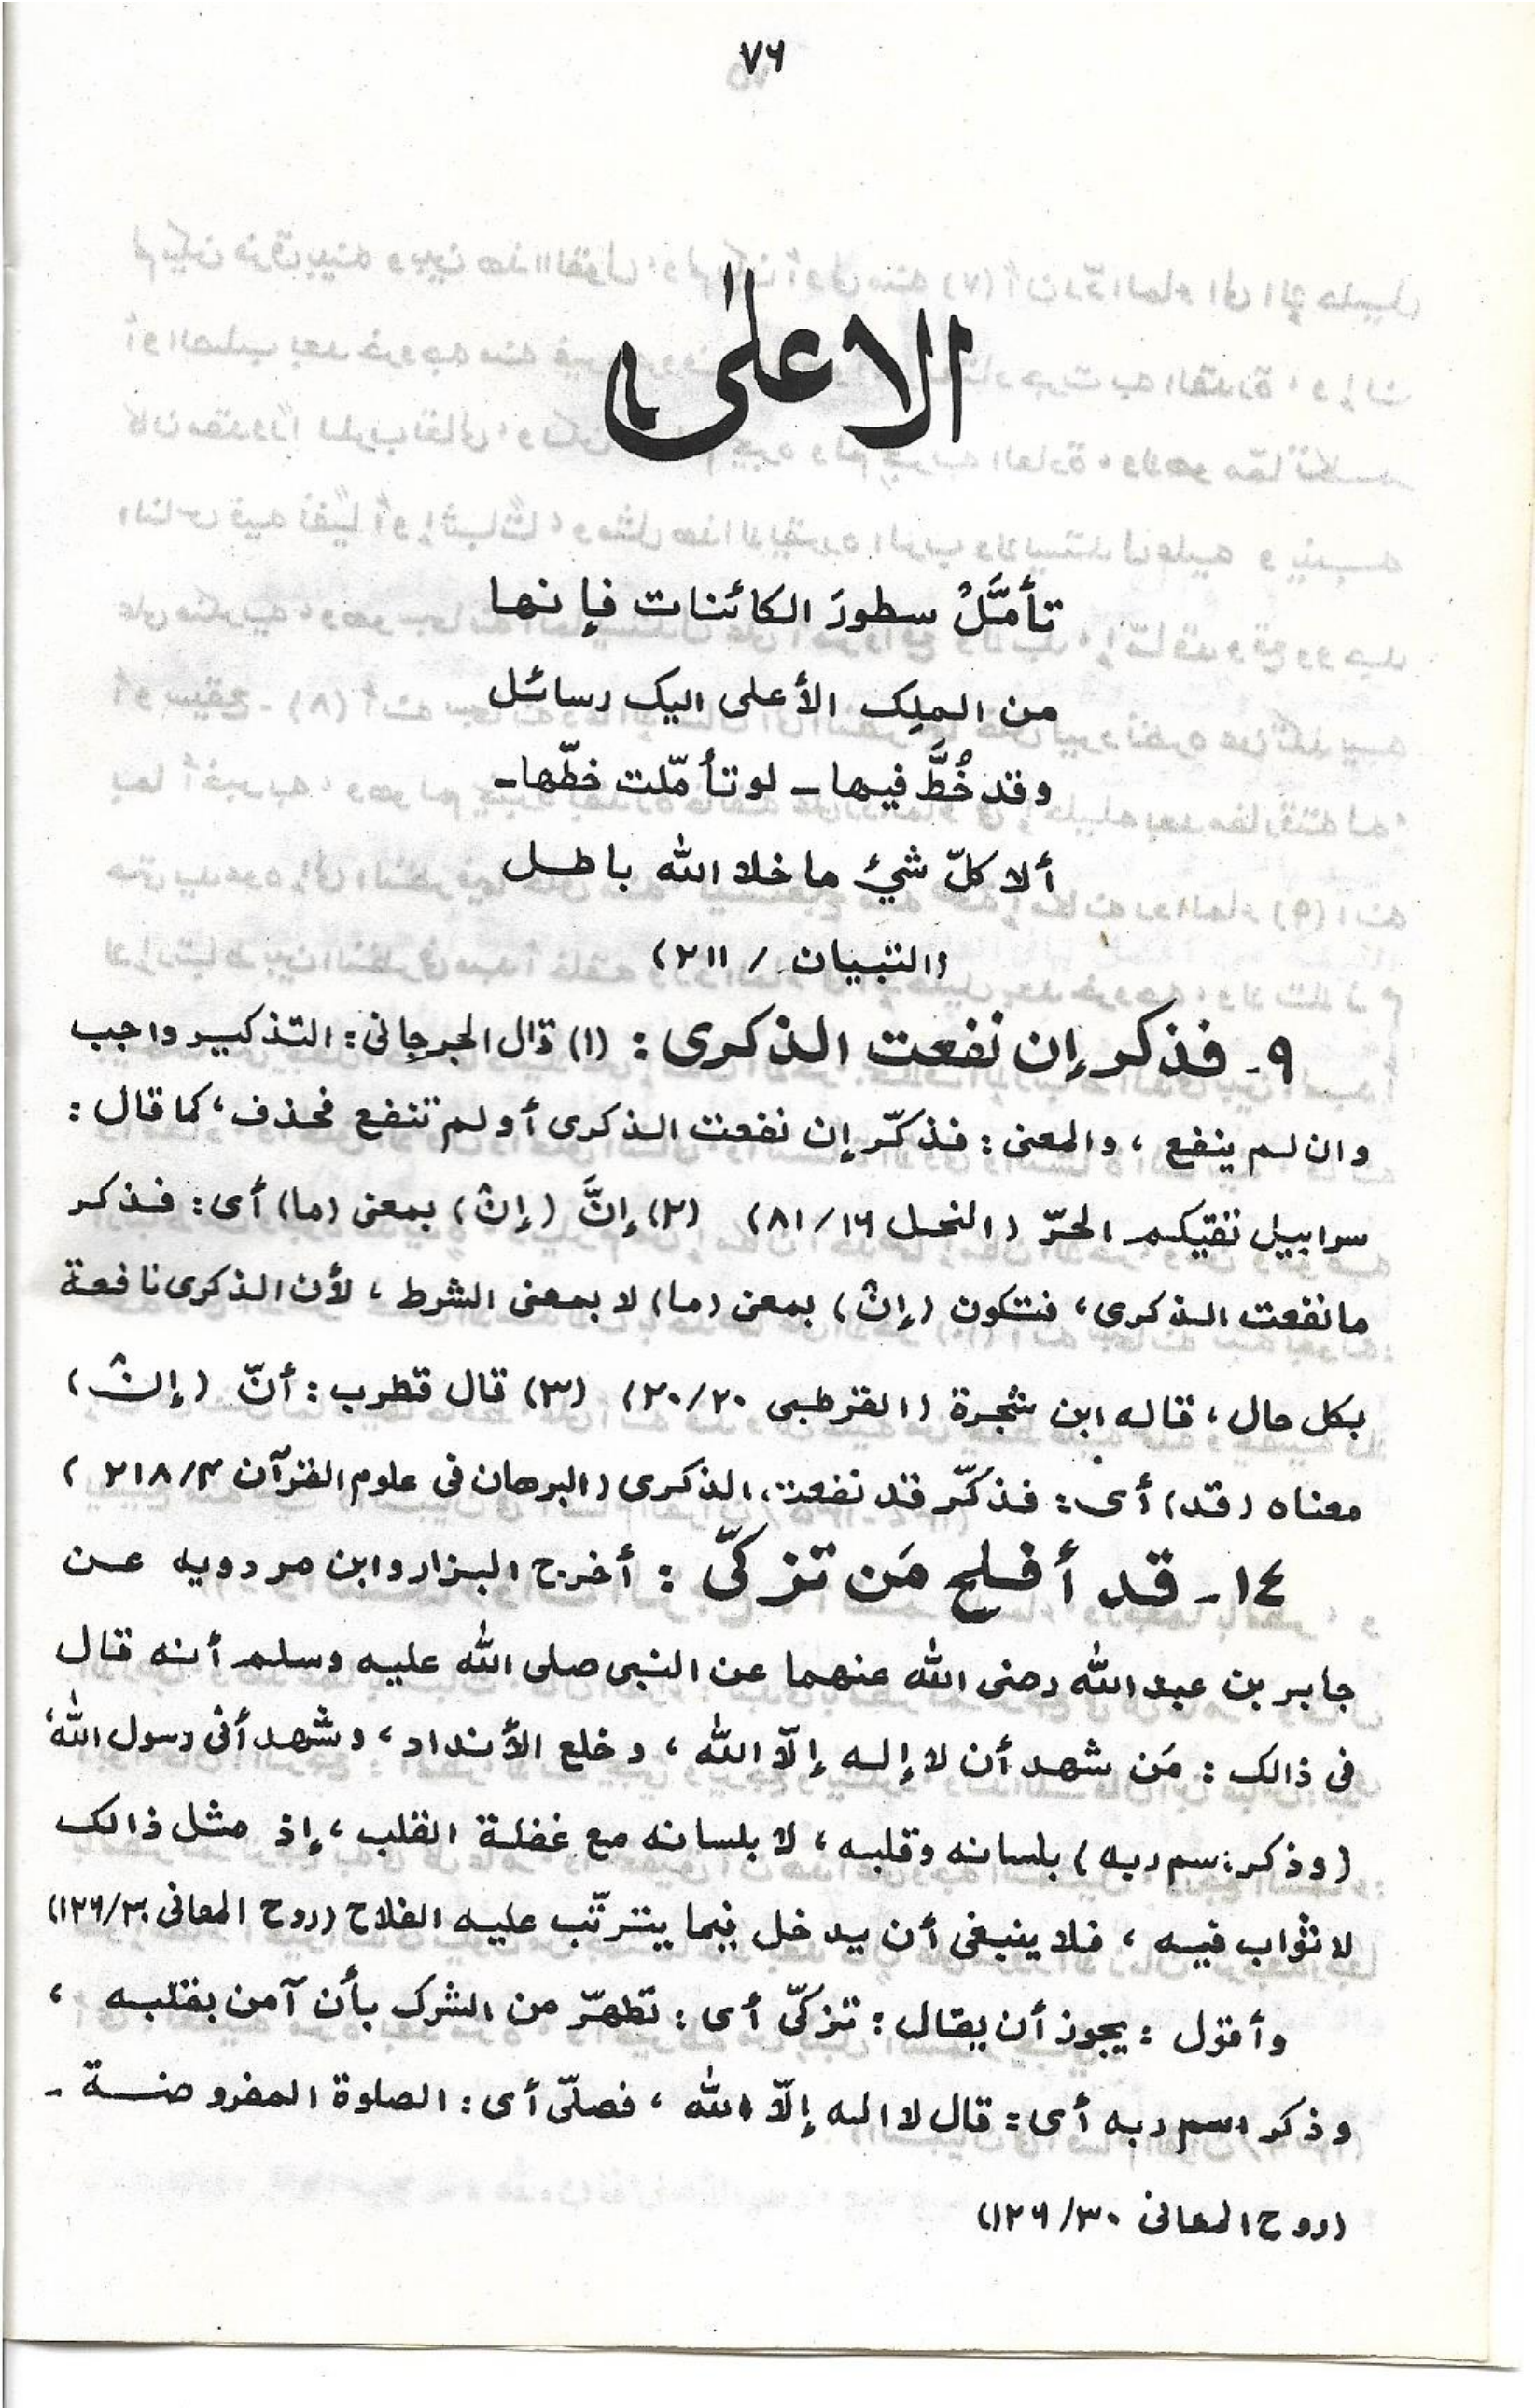 ٧٦
الاعلىٰ
تأمَّلْ سطورَ الكائنات فإنها
من الملِك الأعلى اليک رسائل
وقد خُطَّ فيها ـ لو تأمّلت خطّها ـ
ألا كلّ شيءٍ ما خلا الله باطل
(التبيان / ٢١١)
٩ـ فذكر إن نفعت الذكرى : (١) قال الجرجانى : التذكير واجب
وان لم ينفع ، والمعنى : فذكّر إن نفعت الذكرى أو لم تنفع فحذف ، كما قال :
سرابيل تقيكم الحرّ (النحل ١٦/٨١) (٢) إنَّ (إنْ) بمعنى (ما) أى : فذكر
ما نفعت الذكرى ، فتكون (إنْ) بمعنى (ما) لا بمعنى الشرط ، لأن الذكرى نافعة
بكل حال ، قاله ابن شجرة (القرطبى ٢٠/٢٠) (٣) قال قطرب : أنّ (إنْ)
معناه (قد) أى : فذكّر قد نفعت الذكرى (البرهان فى علوم القرآن ٤/٢١٨)
١٤ـ قد أفلح مَن تزكّى : أخرج البزار وابن مردويه عن
جابر بن عبد الله رضى الله عنهما عن النبى صلى الله عليه وسلم أنه قال
فى ذالک : مَن شهد أن لا إله إلّا الله ، وخلع الأنداد ، وشهد أنى رسول الله ،
(وذكر اسم ربه) بلسانه وقلبه ، لا بلسانه مع غفلة القلب ، إذ مثل ذالک
لا ثواب فيه ، فلا ينبغى أن يدخل فيما يترتّب عليه الفلاح (روح المعانى ٣٠/١٢٦)
وأقول : يجوز أن يقال : تزكّى أى : تطهّر من الشرک بأن آمن بقلبه ،
وذكر اسم ربه أى : قال لا اله إلّا الله ، فصلّى أى : الصلوة المفروضة ـ
(روح المعانى ٣٠/١٢٦)